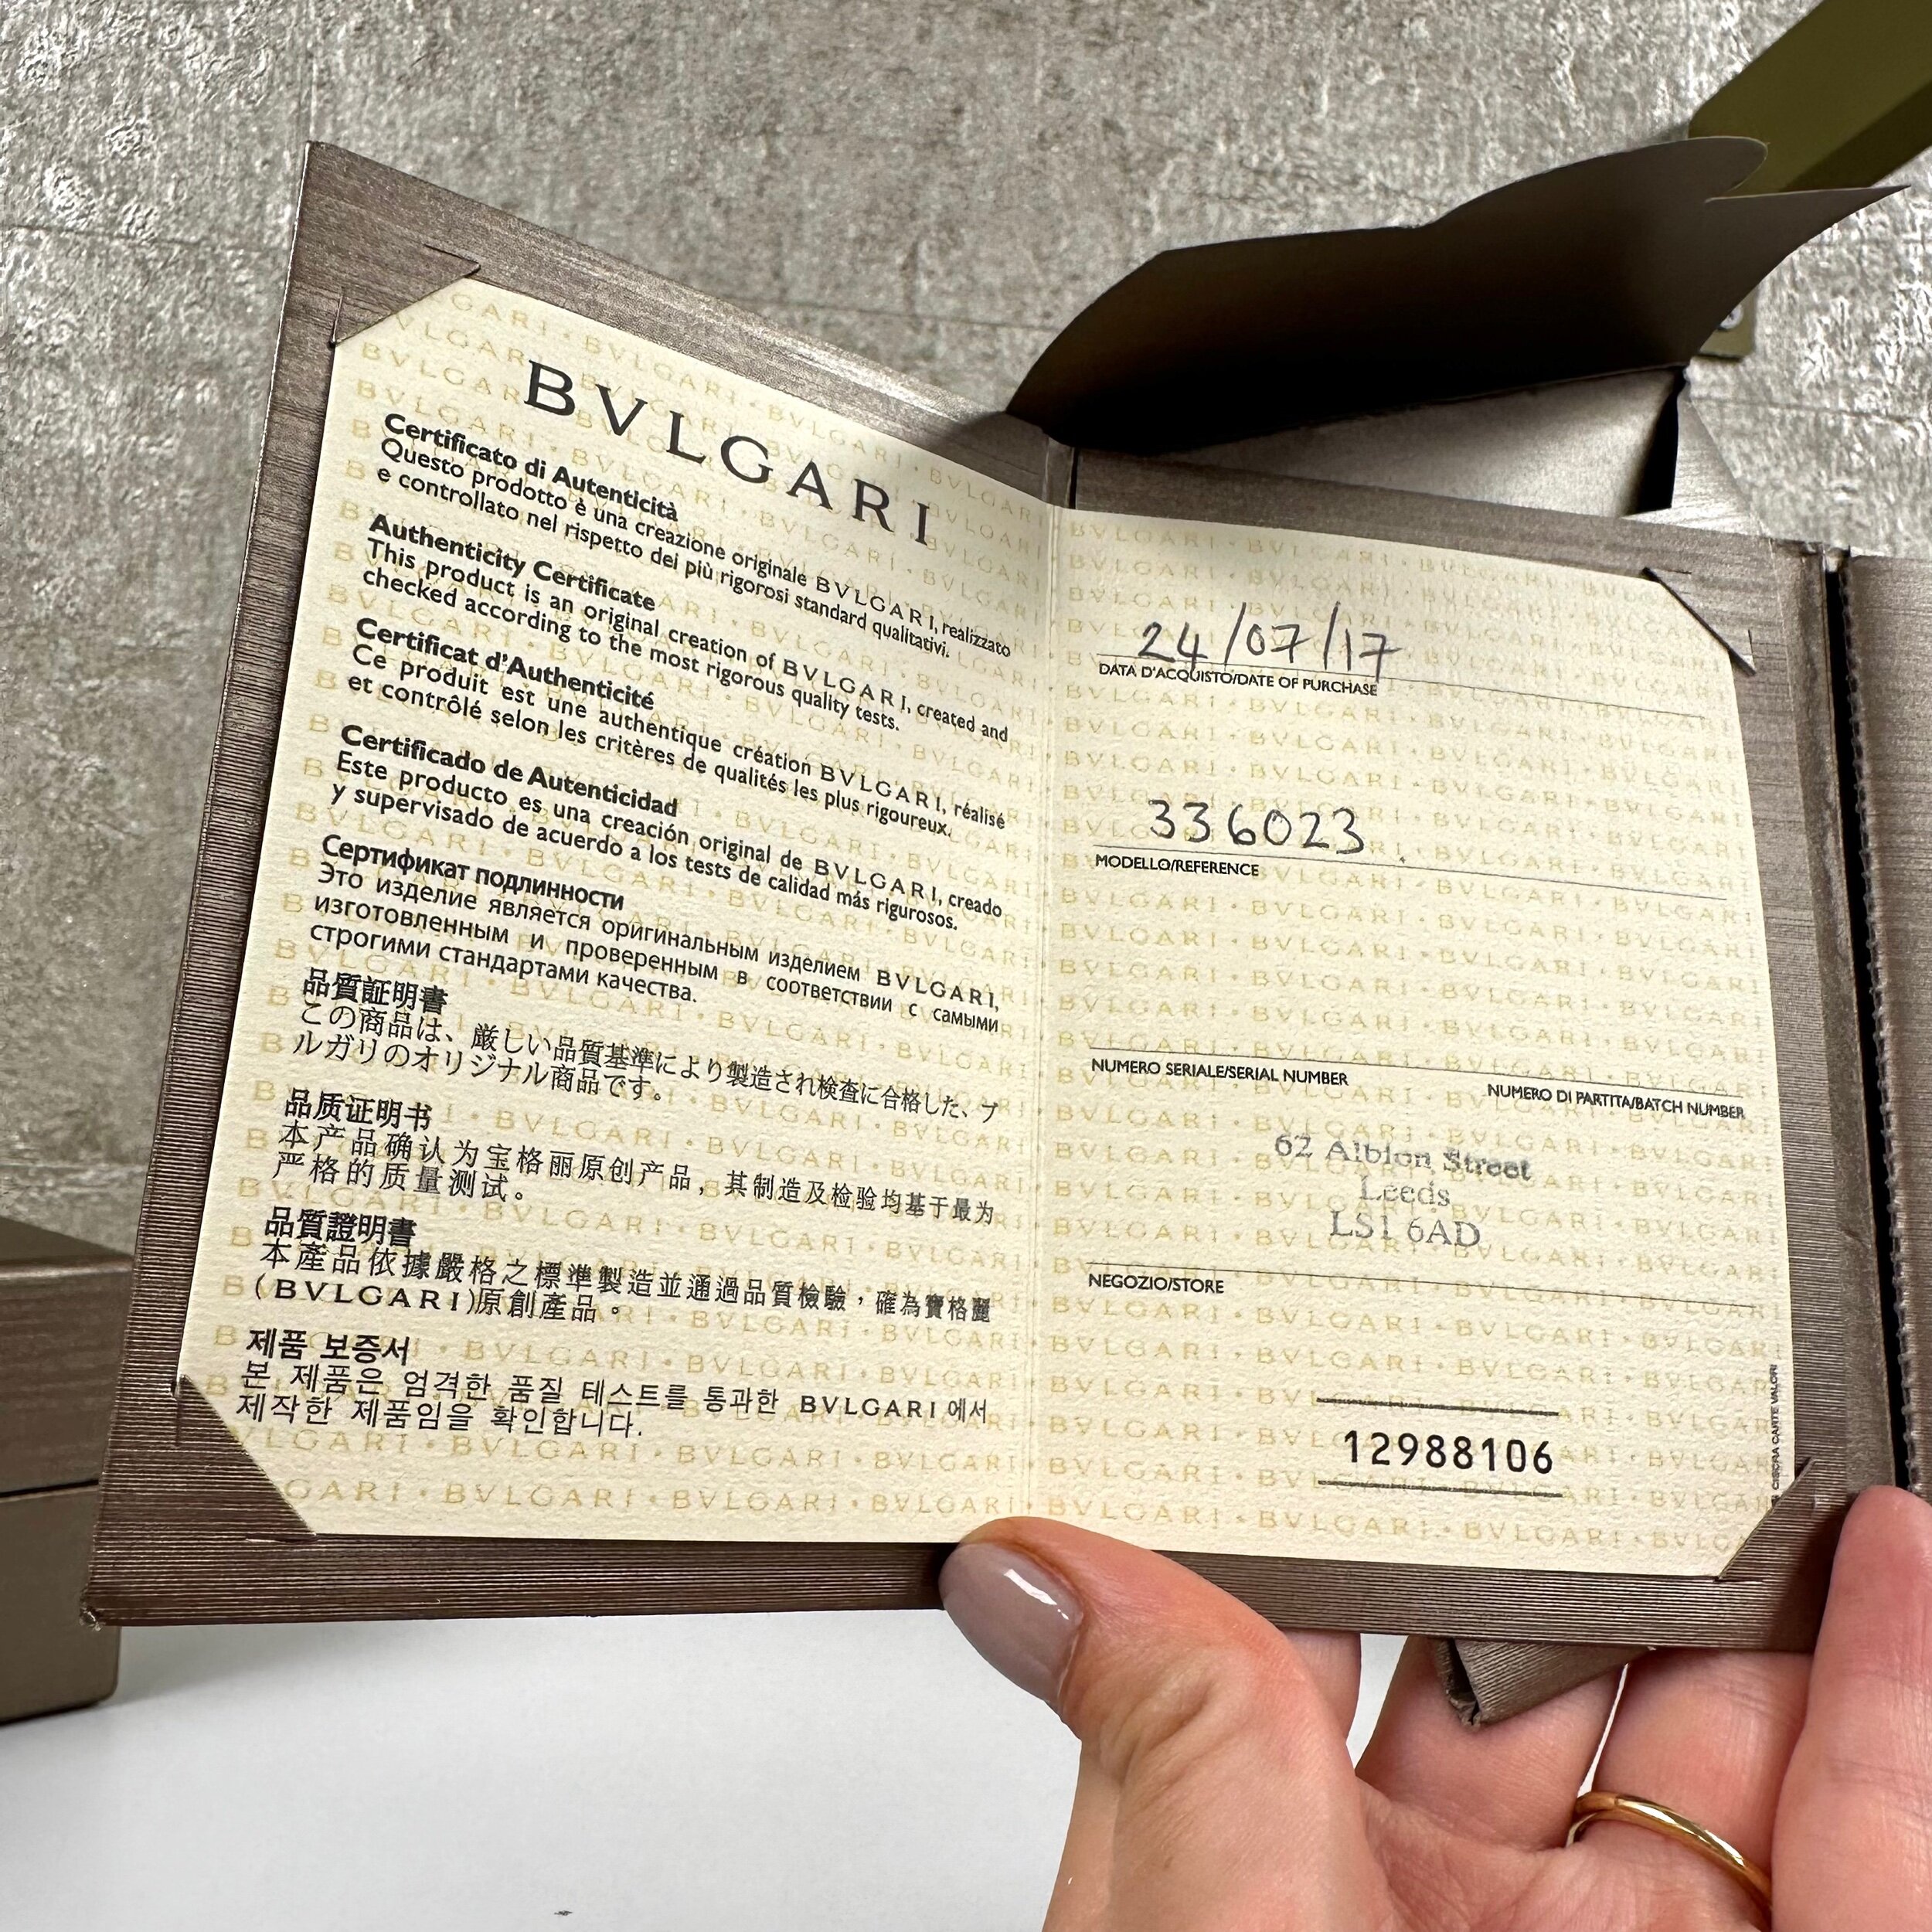 BVLGARI
Certificato di Autenticità
Questo prodotto è una creazione originale BVLGARI, realizzato
e controllato nel rispetto dei più rigorosi standard qualitativi.
Authenticity Certificate
This product is an original creation of BVLGARI, created and
checked according to the most rigorous quality tests.
Certificat d'Authenticité
Ce produit est une authentique création BVLGARI, réalisé
et contrôlé selon les critères de qualités les plus rigoureux.
Certificado de Autenticidad
Este producto es una creación original de BVLGARI, creado
y supervisado de acuerdo a los tests de calidad más rigurosos.
Сертификат подлинности
Это изделие является оригинальным изделием BVLGARI,
изготовленным и проверенным в соответствии с самыми
строгими стандартами качества.
品質証明書
この商品は、厳しい品質基準により製造され検査に合格した、ブ
ルガリのオリジナル商品です。
品质证明书
本产品确认为宝格丽原创产品，其制造及检验均基于最为
严格的质量测试。
品質證明書
本產品依據嚴格之標準製造並通過品質檢驗，確為寶格麗
(BVLGARI)原創產品。
제품 보증서
본 제품은 엄격한 품질 테스트를 통과한 BVLGARI에서
제작한 제품임을 확인합니다.
24/07/17
DATA D'ACQUISTO/DATE OF PURCHASE
336023
MODELLO/REFERENCE
NUMERO SERIALE/SERIAL NUMBER
NUMERO DI PARTITA/BATCH NUMBER
62 Albion Street
Leeds
LS1 6AD
NEGOZIO/STORE
12988106
CARTE VALORI